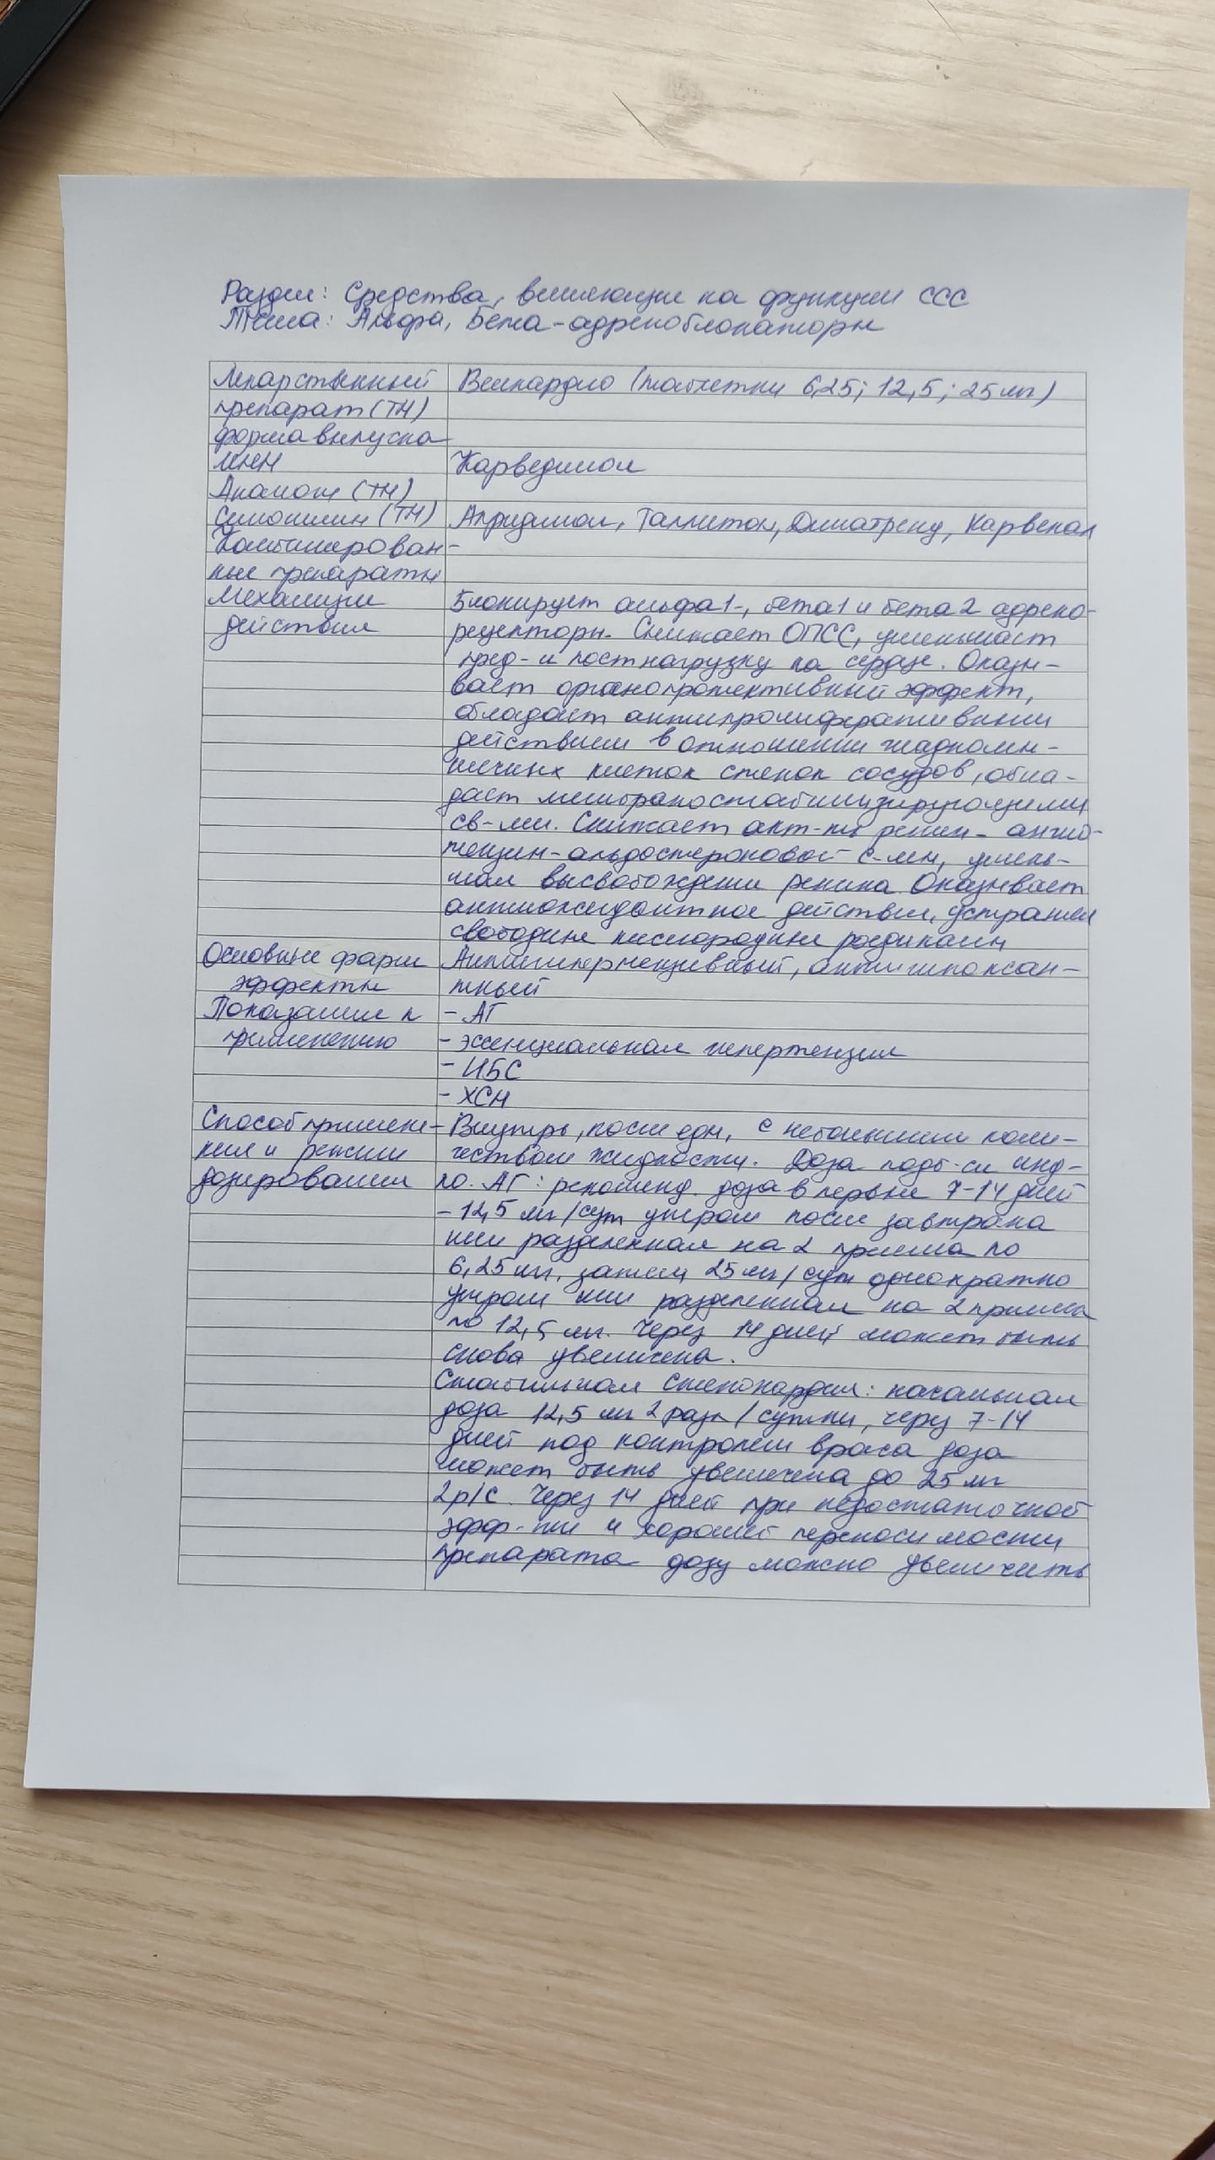 Раздел: Средства, влияющие на функции ССС
Тема: Альфа, Бета-адреноблокаторы
Лекарственный препарат (ТН) форма выпуска
Велкардио (таблетки 6,25; 12,5; 25 мг)
МНН
Карведилол
Аналог (ТН)
Синонимы (ТН)
Акридилол, Таллитон, Дилатренд, Карвенал
Комбинирован-
ные препараты
-
Механизм
действия
Блокирует альфа1-, бета1 и бета2 адрено-
рецепторы. Снижает ОПСС, уменьшает
пред- и постнагрузку на сердце. Оказы-
вает органопротективный эффект,
обладает антипролиферативным
действием в отношении гладкомы-
шечных клеток стенок сосудов, обла-
дает мембраностабилизирующими
св-ми. Снижает акт-ть ренин-ангио-
тензин-альдостероновой с-мы, умень-
шая высвобождение ренина. Оказывает
антиоксидантное действие, устраняя
свободные кислородные радикалы
Основные фарм
эффекты
Антигипертензивный, антигипоксан-
тный
Показания к
применению
- АГ
- эссенциальная гипертензия
- ИБС
- ХСН
Способ примене-
ния и режим
дозирования
Внутрь, после еды, с небольшим коли-
чеством жидкости. Доза подб-ся инд-
но. АГ: рекоменд. доза в первые 7-14 дней
- 12,5 мг/сут утром после завтрака
или разделенная на 2 приема по
6,25 мг, затем 25 мг/сут однократно
утром или разделенная на 2 приема
по 12,5 мг. Через 14 дней может быть
снова увеличена.
Стабильная стенокардия: начальная
доза 12,5 мг 2 раза/сутки, через 7-14
дней под контролем врача доза
может быть увеличена до 25 мг
2р/с. Через 14 дней при недостаточной
эфф-ти и хорошей переносимости
препарата дозу можно увеличить